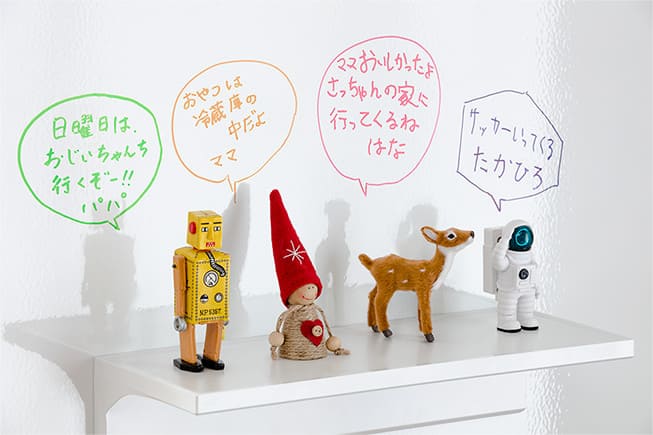 日曜日は、
おじいちゃんち
行くぞー!!
パパ
おやつは
冷蔵庫の
中だよ
ママ
ママおいしかったよ
さっちゃんの家に
行ってくるね
はな
サッカーいってくる
たかひろ
N.P.5357